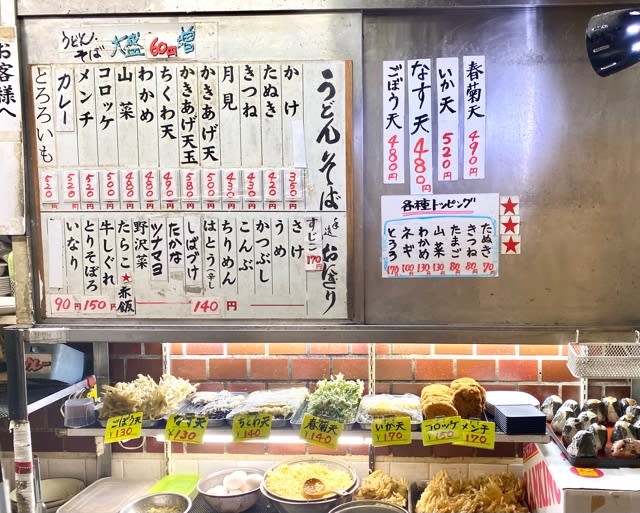 お客様へ
うどん・そば 大盛 60円増
うどん そば
かけ 350
たぬき 420
きつね 430
月見 430
かきあげ天 500
かきあげ天玉 580
ちくわ天 490
わかめ 480
山菜 480
コロッケ 500
メンチ 520
カレー 520
とろろいも 520
手造 おにぎり
すじこ 170円
さけ
うめ
かつぶし
こんぶ
ちりめん
はとう(辛し)
しばづけ
たかな
ツナマヨ
野沢菜
140円
たらこ★赤飯
牛しぐれ
とりそぼろ
150円
いなり
90円
春菊天 490
いか天 520
なす天 480
ごぼう天 480
各種トッピング
たぬき 70
きつね 80
たまご 80
山菜 130
わかめ 130
ネギ 100
とろろ 170
★
★
★
ごぼう天 ¥130
なす天 ¥130
ちくわ天 ¥140
春菊天 ¥140
いか天 ¥170
コロッケ ¥150
メンチ ¥170